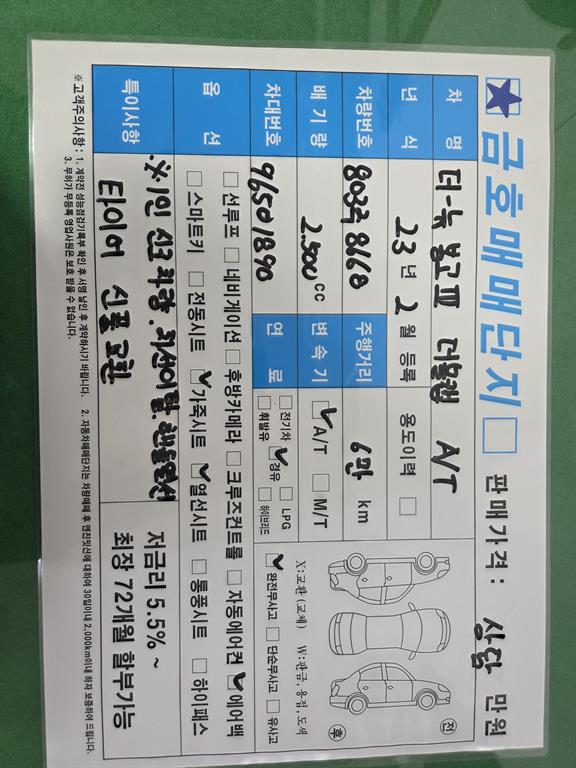 ★ 금호매매단지 □ 판매가격 : 상담 만원
차 명 더-뉴 봉고Ⅲ 더블캡 A/T
년 식 23년 2월 등록 용도이력 □
차량번호 803주 8168 주행거리 6만 km
배 기 량 2.500 cc 변속기 ☑ A/T □ M/T
차대번호 96501890 연 료 □전기차 ☑경유 □LPG
□휘발유 □하이브리드
X:교환(교체) W:판금,용접,도색
전
후
☑완전무사고 □단순무사고 □유사고
옵 션 □선루프 □네비게이션 □후방카메라 □크루즈컨트롤 □자동에어컨 ☑에어백
□스마트키 □전동시트 ☑가죽시트 ☑열선시트 □통풍시트 □하이패스
특이사항 ※1인 신조 차량. 차선이탈. 핸들열선
타이어 신품 교환
저금리 5.5% ~
최장 72개월 할부가능
※고객주의사항 : 1. 계약전 성능점검기록부 확인 후 서명 날인 후 계약하시기 바랍니다. 2. 자동차매매단지는 차량매매 후 엔진밋션에 대하여 30일이내 2,000km이내 하자 보증하여 드립니다.
3. 무허가 무등록 영업사원은 보호 받을 수 없습니다.